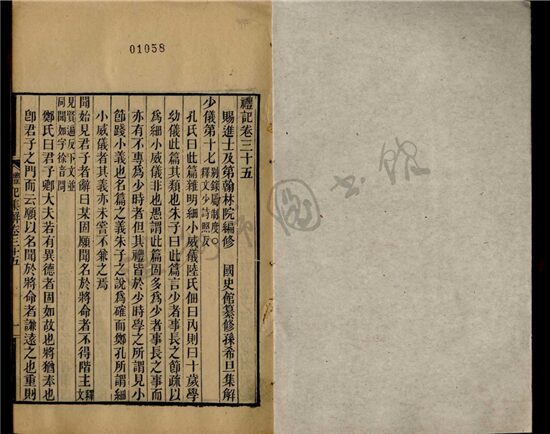 01058
禮記卷三十五
賜進士及第翰林院編修　國史館纂修孫希旦集解
少儀第十七別錄屬制度○釋文少詩照反
孔氏曰此篇雜明細小威儀陸氏佃曰內則曰十歲學
幼儀此篇其類也朱子曰此篇言少者事長之節疏以
為細小威儀非也愚謂此篇固多為少者事長之事而
亦有不專為少時者但其禮皆於少時學之所謂見小
節踐小義也名篇之義朱子之說為確而鄭孔所謂細
小威儀者其義亦未嘗不兼之焉
聞始見君子者辭曰某固願聞名於將命者不得階主釋文
見賢遍反下文並同聞如字徐音問
鄭氏曰君子卿大夫若有異德者固如故也將猶奉也
卽君子之門而云願以名聞於將命者謙遠之也重則
禮記集解卷三十五
一